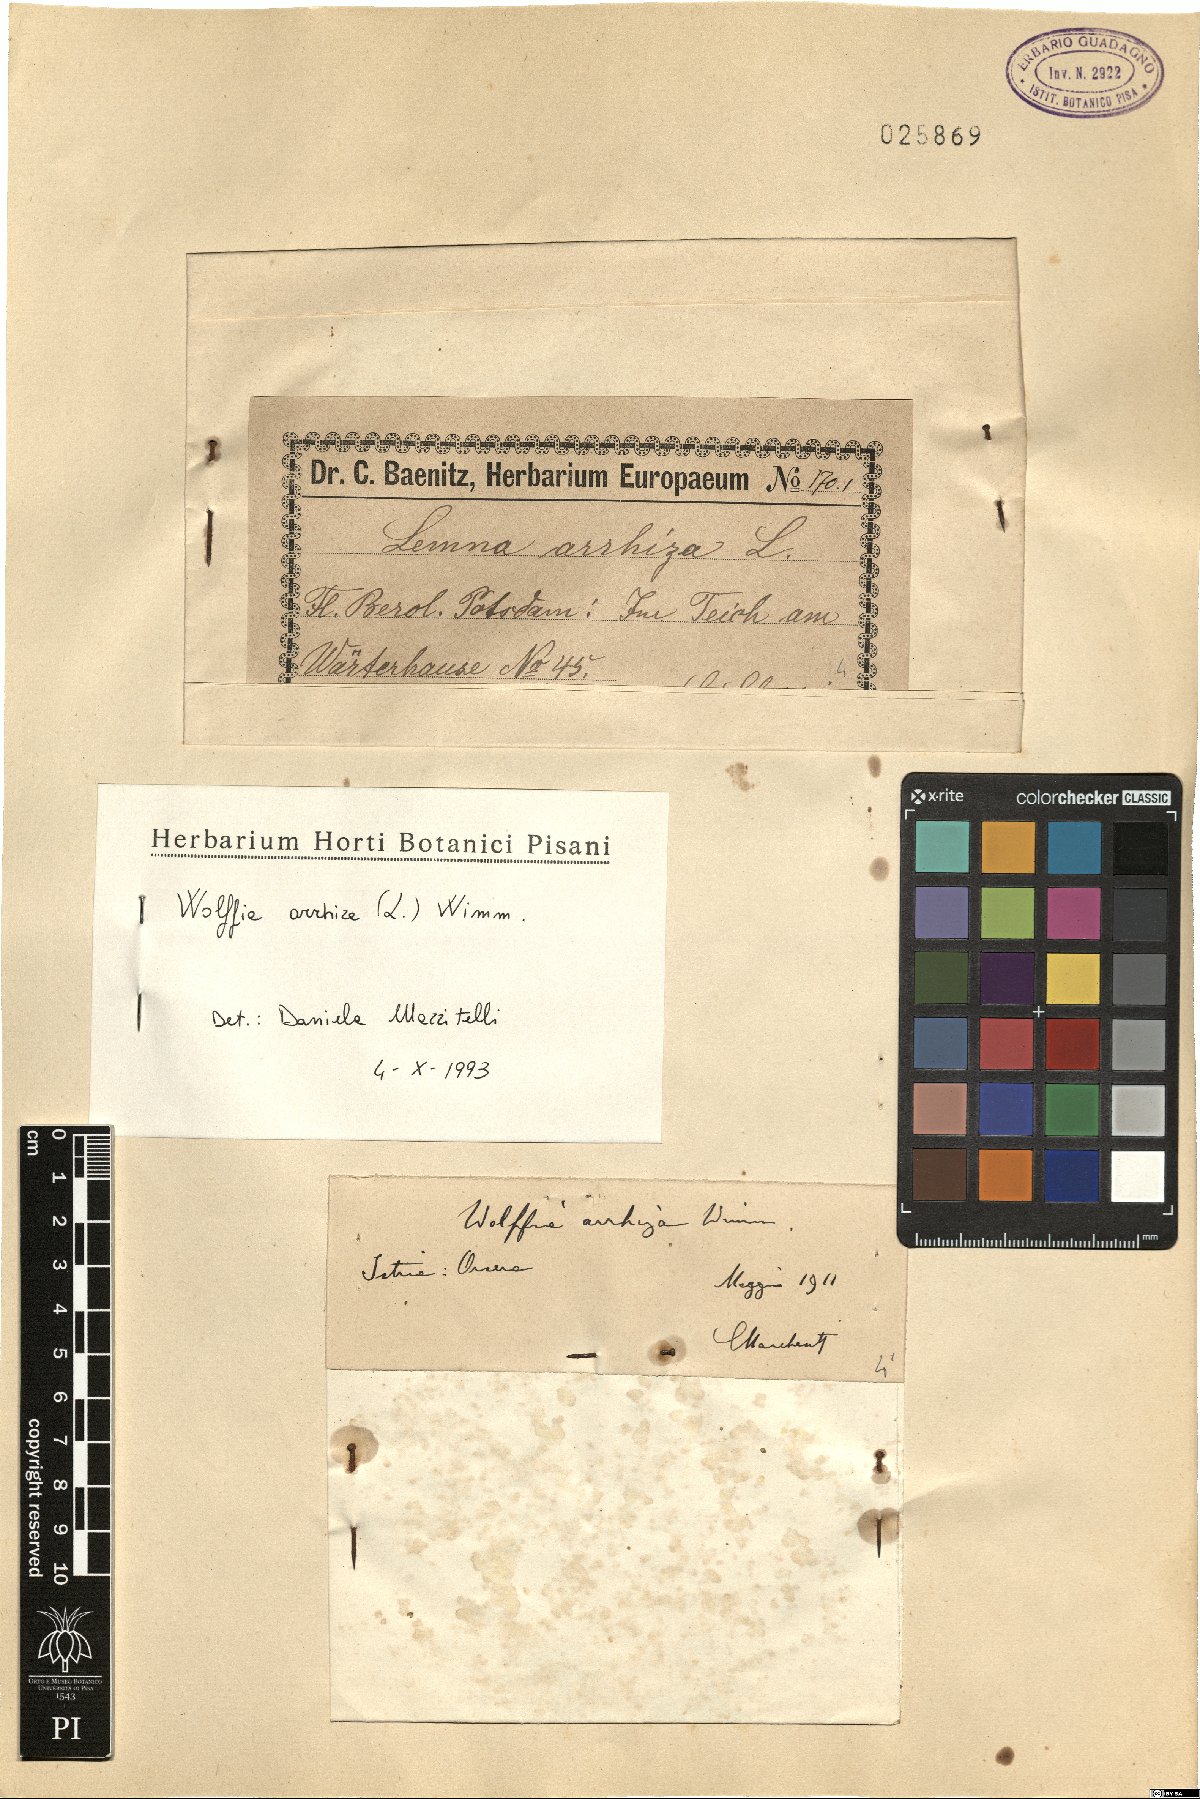 ERBARIO GUADAGNO
Inv. N. 2922
ISTIT. BOTANICO PISA
025869
Dr. C. Baenitz, Herbarium Europaeum No
Lemna arrhiza L.
Fl. Berol. Potsdam: Im Teich am
Wärterhause No 45.
Herbarium Horti Botanici Pisani
Wolffia arrhiza (L.) Wimm.
Det.: Daniela Mazzitelli
4-X-1993
x-rite
colorchecker CLASSIC
mm
Wolffia arrhiza Wimm.
Istria: Orsera
Maggio 1911
Marchesetti
4
0 1 2 3 4 5 6 7 8 9 10
cm
copyright reserved
ORTO E MUSEO BOTANICO
UNIVERSITÀ DI PISA
1543
PI
BY SA